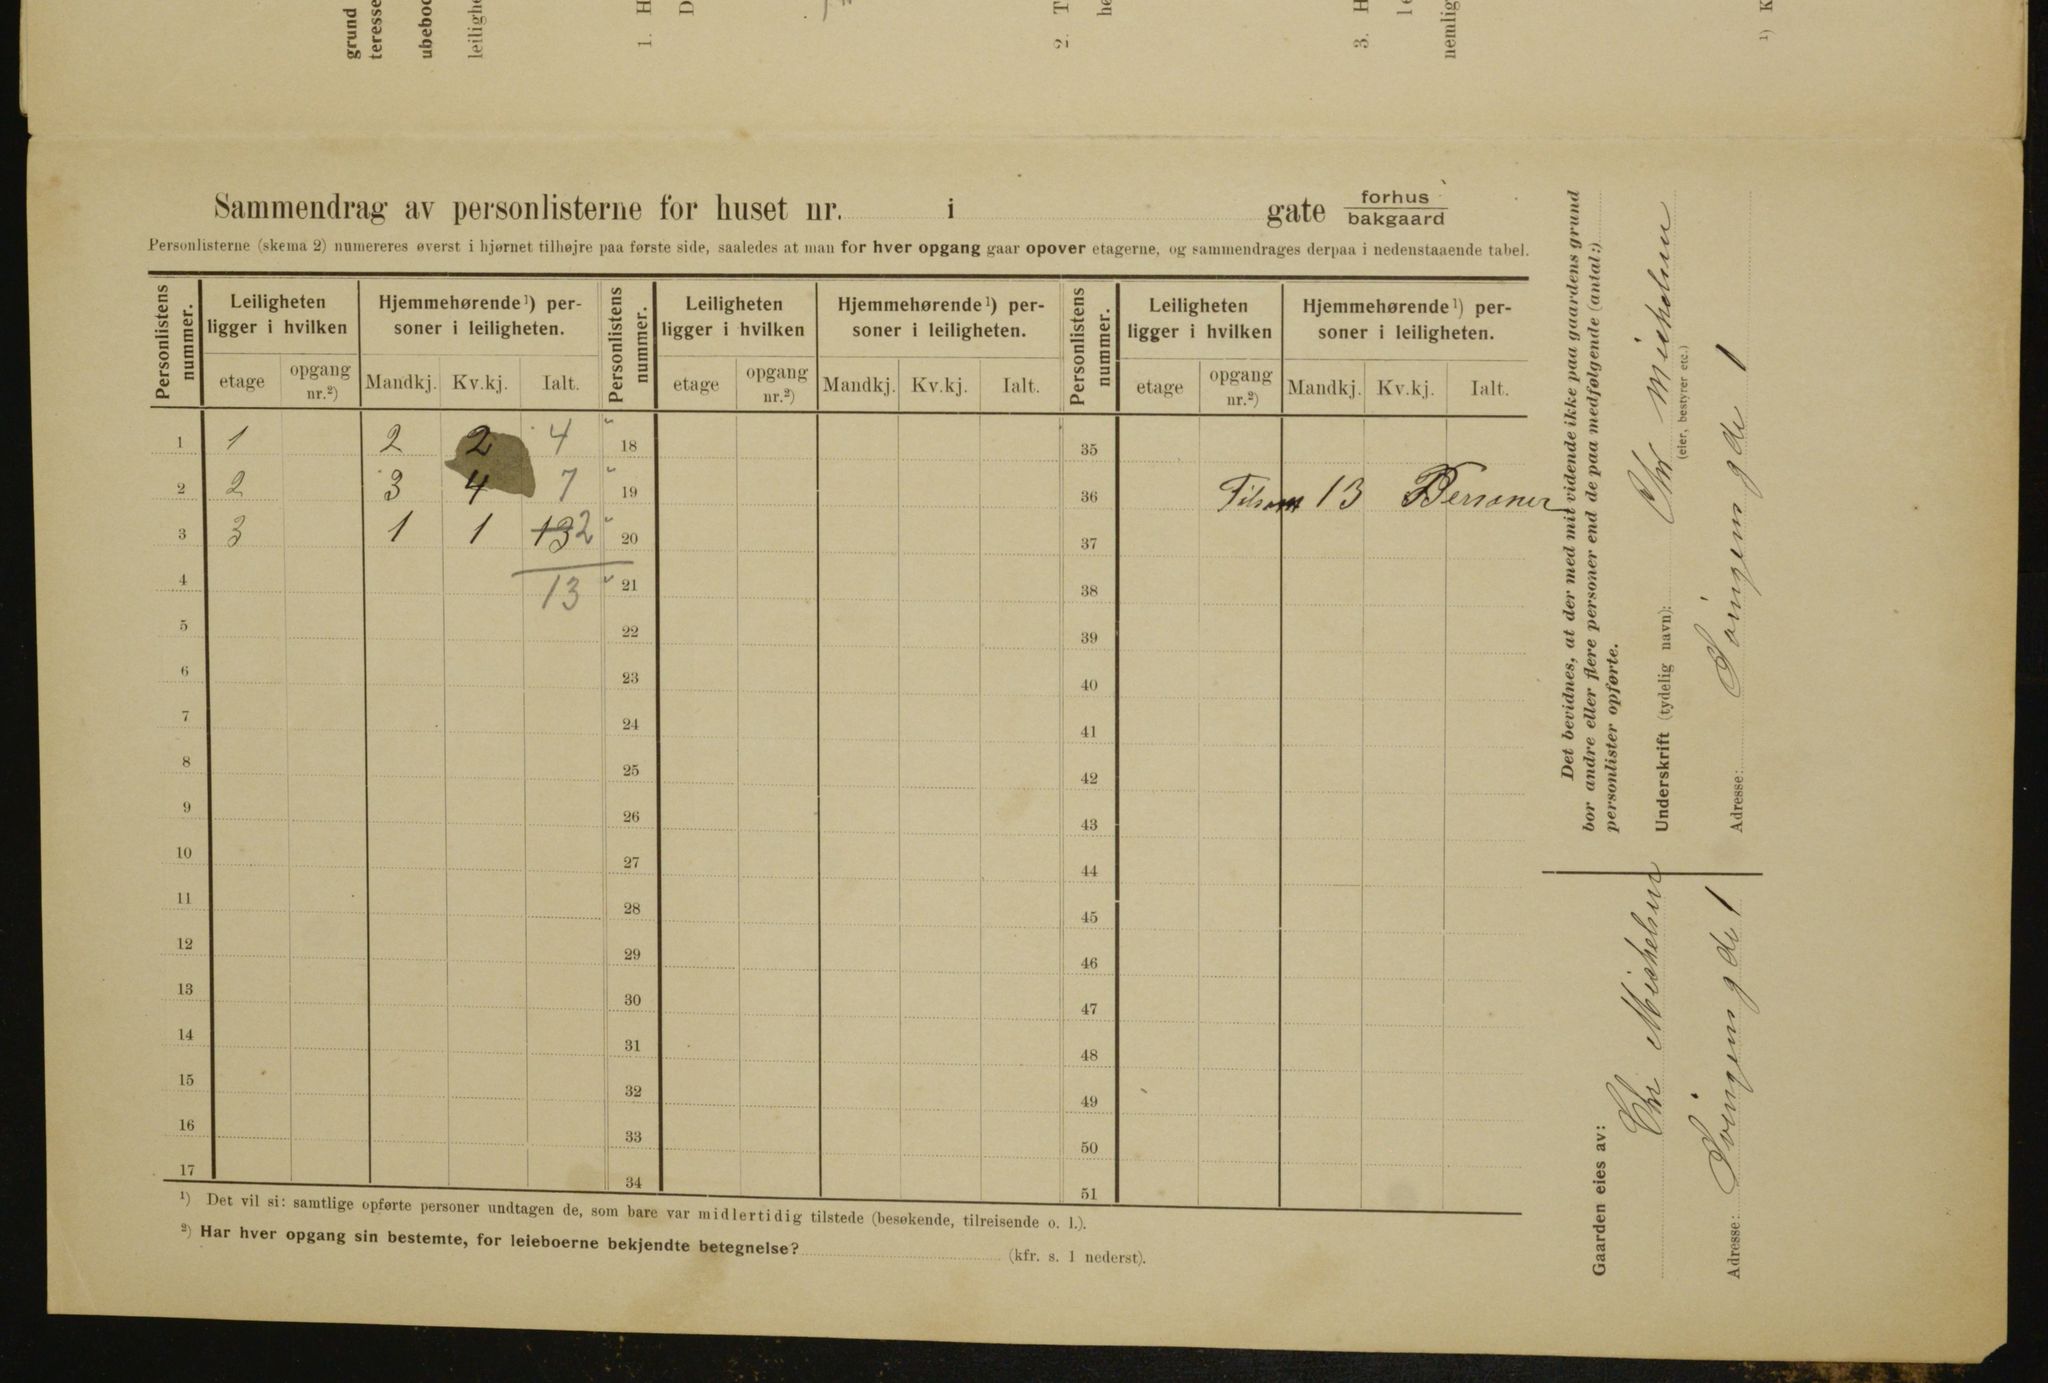 grund
teresse
ubeboe
leilighe
1. H
D
2. T
he
3. H
le
nemlig
1) K
Sammendrag av personlisterne for huset nr. i gate forhus
bakgaard
Personlisterne (skema 2) numereres øverst i hjørnet tilhøjre paa første side, saaledes at man for hver opgang gaar opover etagerne, og sammendrages derpaa i nedenstaaende tabel.
Personlistens nummer. Leiligheten ligger i hvilken Hjemmehørende 1) personer i leiligheten. Personlistens nummer. Leiligheten ligger i hvilken Hjemmehørende 1) personer i leiligheten. Personlistens nummer. Leiligheten ligger i hvilken Hjemmehørende 1) personer i leiligheten.
etage opgang nr.2) Mandkj. Kv.kj. Ialt. etage opgang nr.2) Mandkj. Kv.kj. Ialt. etage opgang nr.2) Mandkj. Kv.kj. Ialt.
1 1 2 2 4 18 35
2 2 3 4 7 19 36 Tilsam 13 Personer
3 3 1 1 13 2 20 37
4 13 21 38
5 22 39
6 23 40
7 24 41
8 25 42
9 26 43
10 27 44
11 28 45
12 29 46
13 30 47
14 31 48
15 32 49
16 33 50
17 34 51
1) Det vil si: samtlige opførte personer undtagen de, som bare var midlertidig tilstede (besøkende, tilreisende o. l.).
2) Har hver opgang sin bestemte, for leieboerne bekjendte betegnelse? (kfr. s. 1 nederst).
Det bevidnes, at der med mit vidende ikke paa gaardens grund
bor andre eller flere personer end de paa medfølgende (antal:)
personlister opførte.
Underskrift (tydelig navn): Chr Mickelsen
(eier, bestyrer etc.)
Adresse: Svingen gde 1
Gaarden eies av:
Chr Mickelsen
Adresse: Svingen gde 1